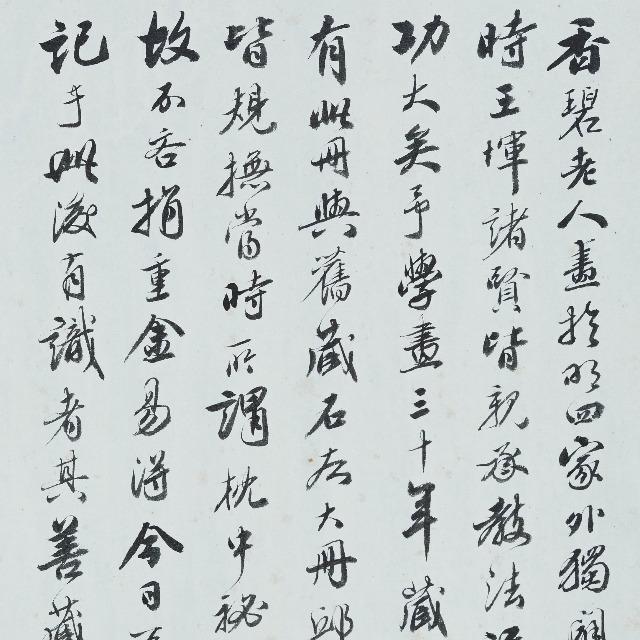 香碧老人畫於明四家外獨闢
時王惲諸賢皆親承教法
功大矣予學畫三十年藏
有此冊與舊藏石谷大冊
皆規撫當時所謂枕中秘
故不吝捐重金易得今日
記于此後有識者其善藏